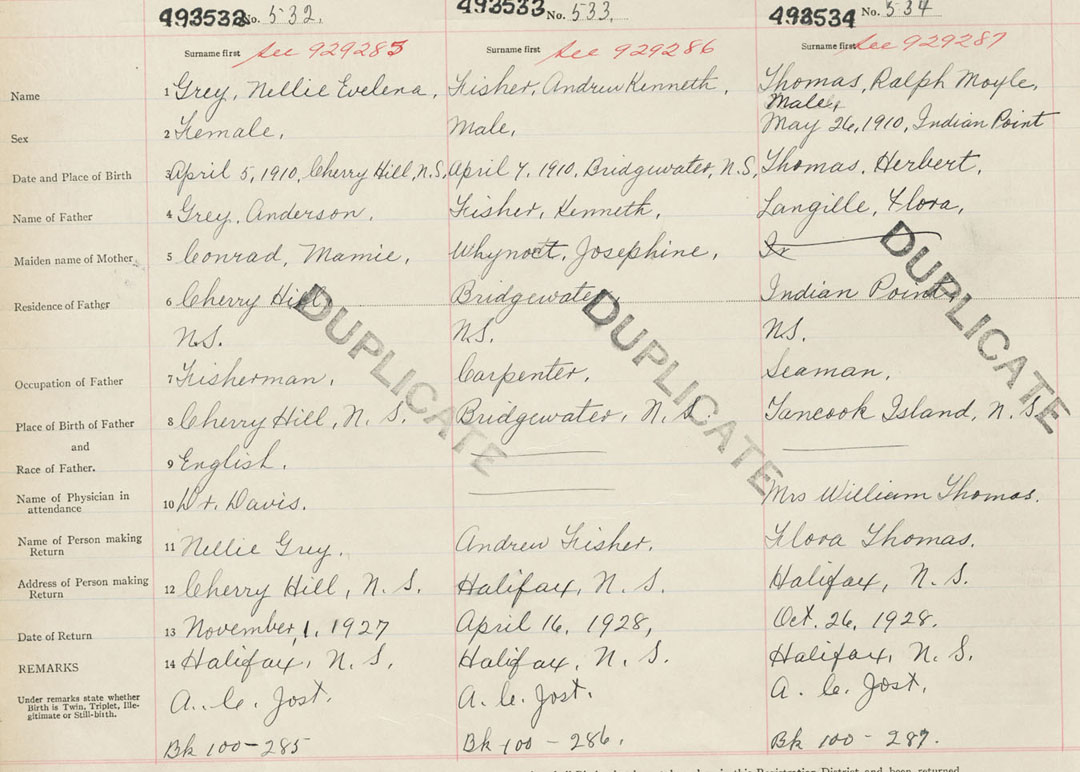 493532 No. 532.
493533 No. 533.
493534 No. 534
Surname first See 929285
Surname first See 929286
Surname first See 929287
Name
1 Grey, Nellie Evelena,
Fisher, Andrew Kenneth,
Thomas, Ralph Moyle,
Male,
Sex
2 Female,
Male,
May 26, 1910, Indian Point
Date and Place of Birth
3 April 5, 1910, Cherry Hill, N.S,
April 7, 1910, Bridgewater, N.S,
Thomas, Herbert,
Name of Father
4 Grey, Anderson,
Fisher, Kenneth,
Langille, Flora,
Maiden name of Mother
5 Conrad, Mamie,
Whynoct, Josephine,
Residence of Father
6 Cherry Hill
Bridgewater
Indian Point
N.S.
N.S.
N.S.
Occupation of Father
7 Fisherman,
Carpenter,
Seaman,
Place of Birth of Father
8 Cherry Hill, N. S.
Bridgewater, N. S.
Tancook Island, N. S
and
Race of Father.
9 English.
Name of Physician in
attendance
10 Dr. Davis.
Mrs William Thomas.
Name of Person making
Return
11 Nellie Grey.
Andrew Fisher.
Flora Thomas.
Address of Person making
Return
12 Cherry Hill, N. S.
Halifax, N. S.
Halifax, N. S.
Date of Return
13 November, 1, 1927
April 16, 1928,
Oct. 26, 1928.
REMARKS
14 Halifax, N. S,
Halifax, N. S.
Halifax, N. S.
Under remarks state whether
Birth is Twin, Triplet, Ille-
gitimate or Still-birth.
A. C. Jost.
A. C. Jost.
A. C. Jost.
Bk 100-285
Bk 100 - 286.
Bk 100 - 287.
DUPLICATE
DUPLICATE
DUPLICATE